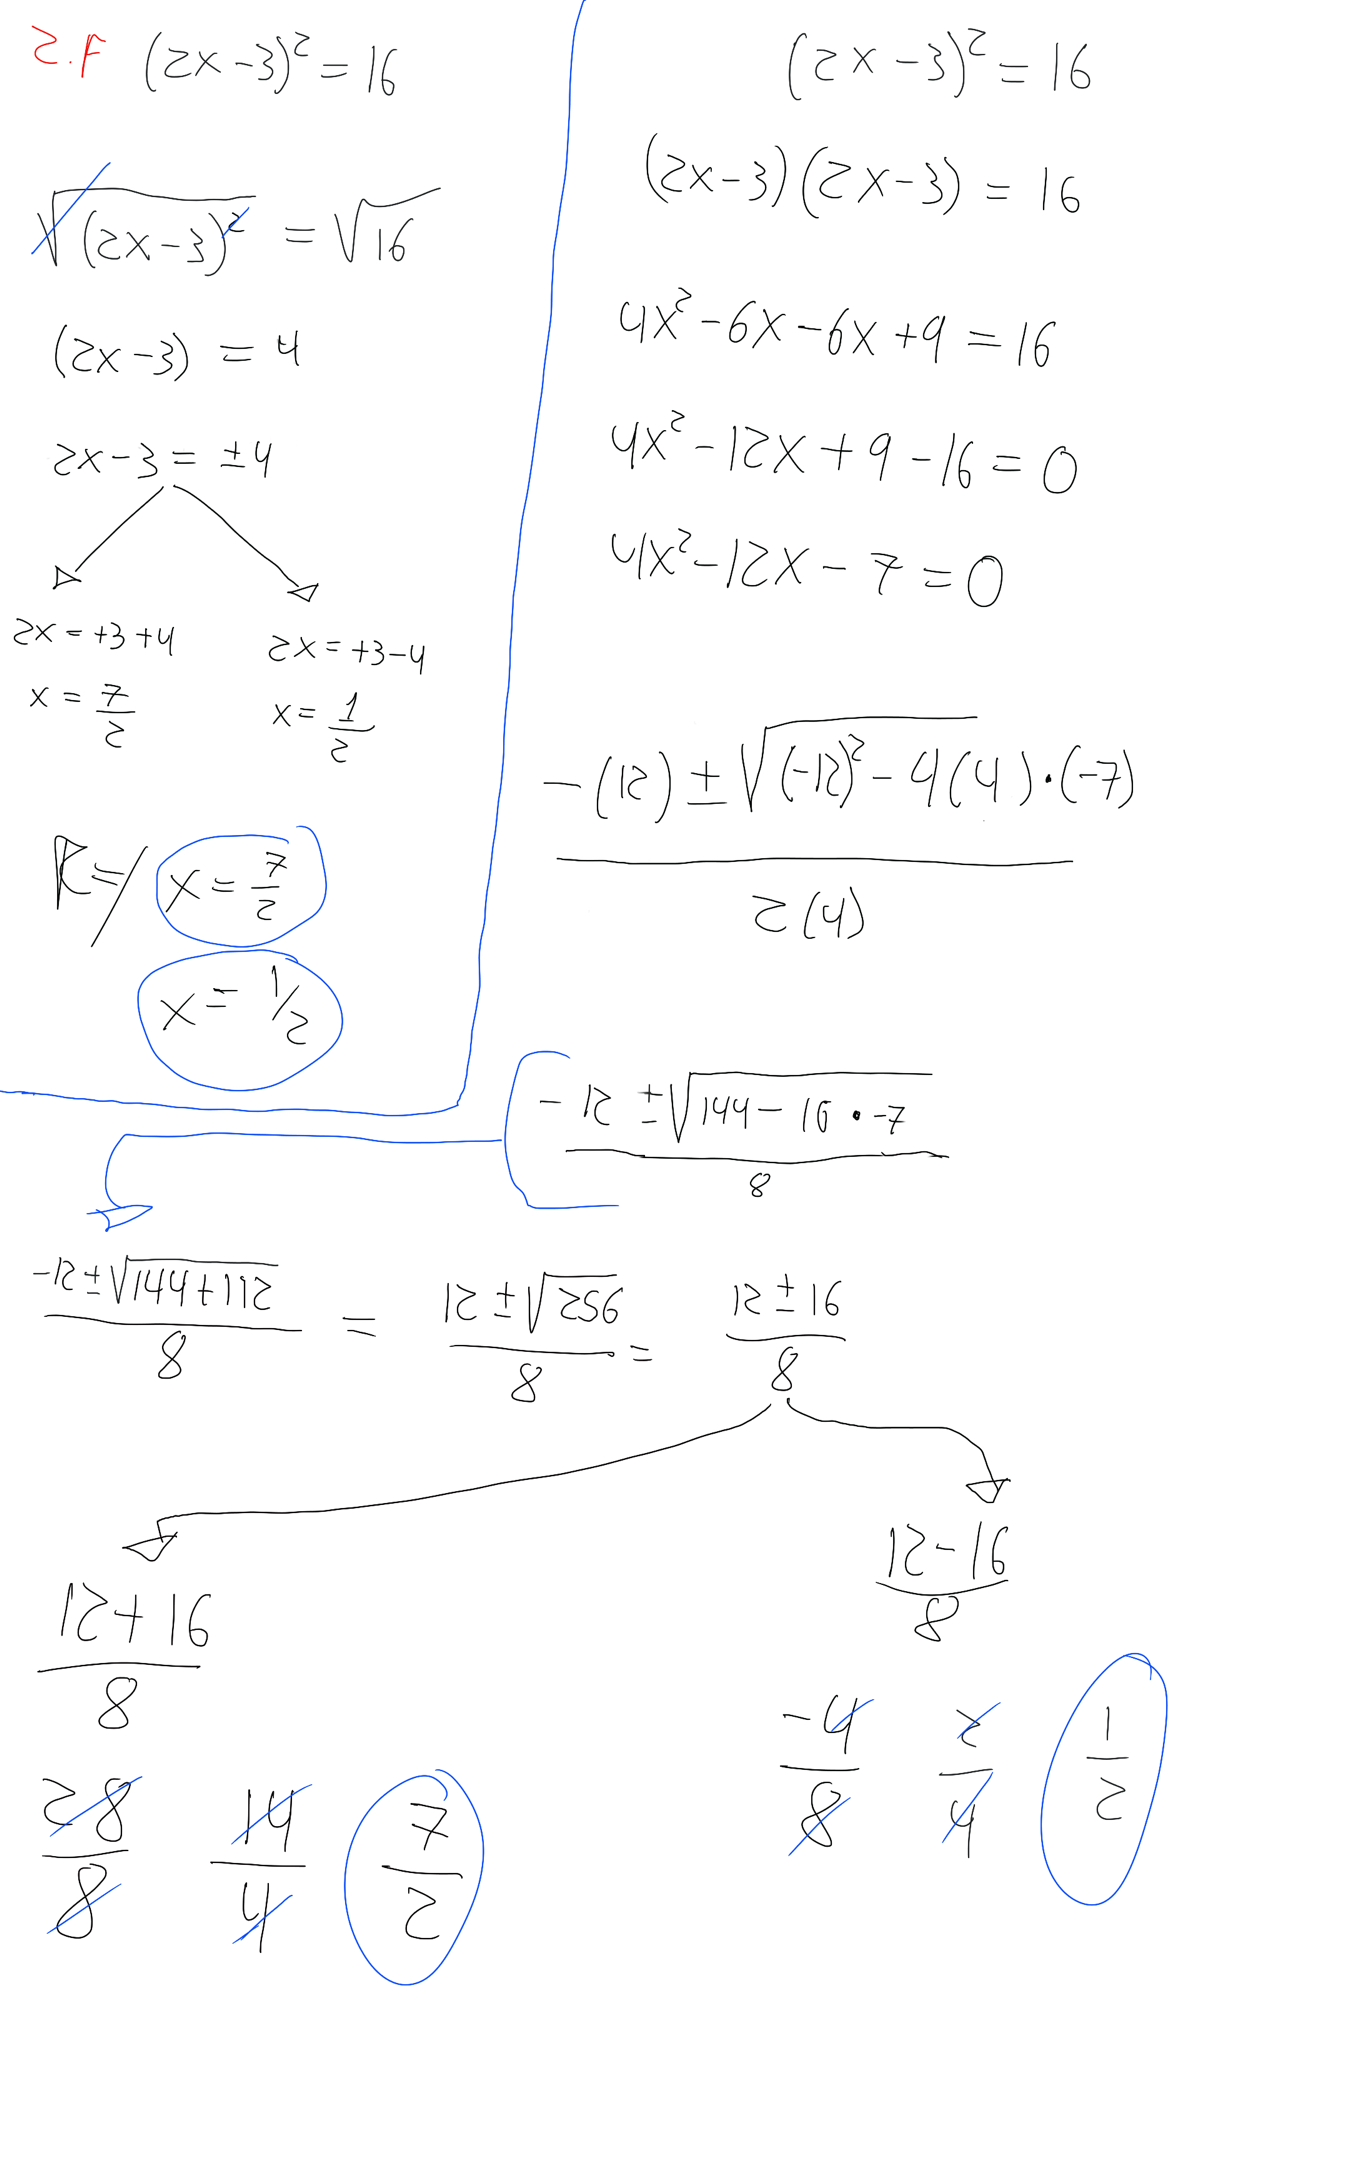 2.F (2x-3)² = 16
√(2x-3)² = √16
(2x-3) = 4
2x-3 = ±4
2x = +3+4
x = 7/2
2x = +3-4
x = 1/2
R=/ x = 7/2
x = 1/2
(2x-3)² = 16
(2x-3)(2x-3) = 16
4x²-6x-6x+9 = 16
4x²-12x+9-16 = 0
4x²-12x-7 = 0
-(12) ± √(-12)²-4(4)·(-7)
2(4)
-12 ± √144-16·-7
8
-12±√144+112 / 8 = 12±√256 / 8 = 12±16 / 8
12+16
8
28/8 14/4 7/2
12-16
8
-4/8 2/4 1/2